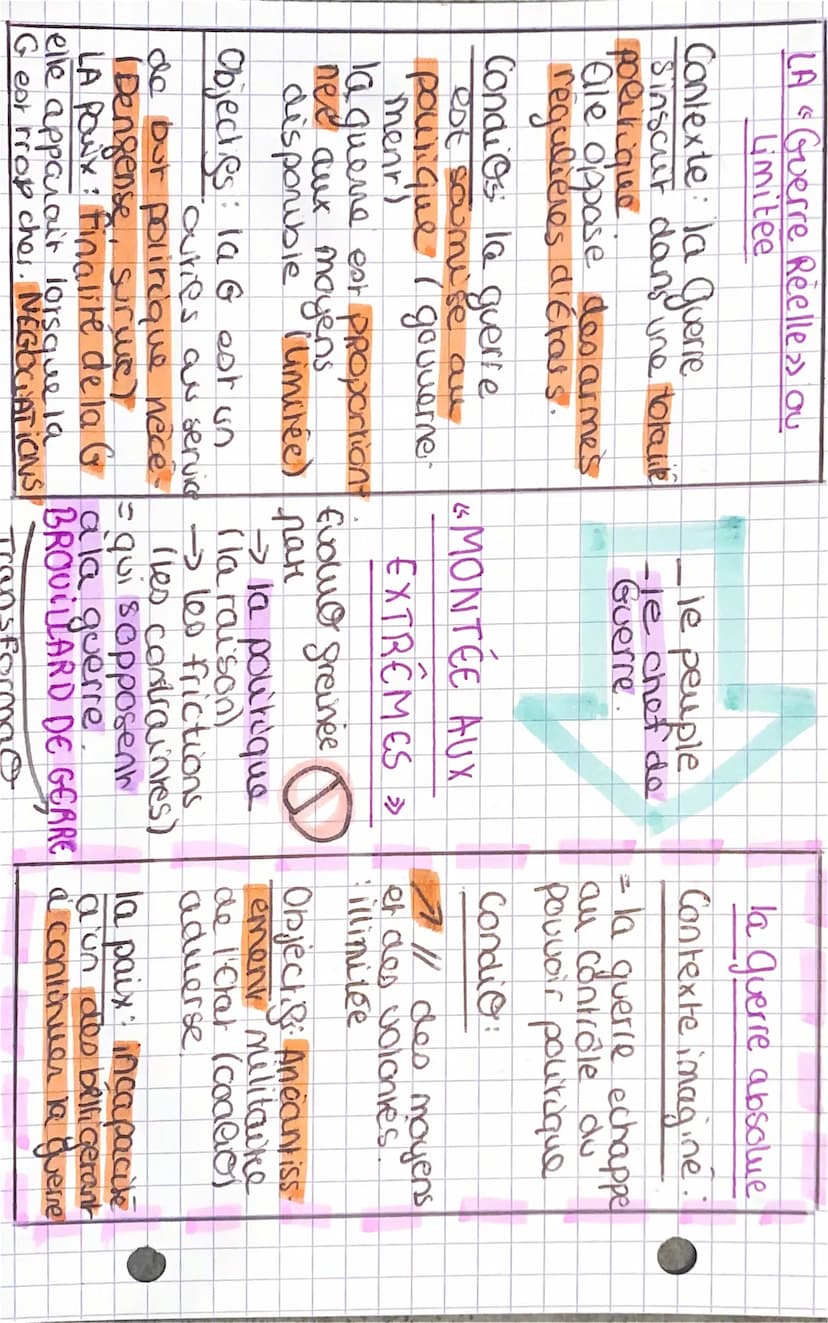 LA "Guerre Réelle" ou
Limitée
Contexte : la Guerre
s'inscrit dans une totalité
politique
Elle oppose des armés
régulières d'États.
CondiOs la guerre
est soumise au
politique (gouverne-
ment)
la guerre est proportion
née aux moyens
disponible (limitée)
Objectifs : la G est un
outies au service
de but politique néce-
(Dengense, survie)
LA paix : Finalité de la G
elle apparaît lorsque la
G est trop cher. NÉGOCIATIONS
— le peuple
— le chef de
Guerre.
"MONTÉE AUX
EXTRÊMES"
ÉvoluO freinée
par
→ la politique
(la raison)
→ les frictions
(les contraintes)
= qui s'opposent
à la guerre.
BROUILLARD DE GERRE
TransformaO
la guerre absolue
Contexte imaginé :
= la guerre echappe
au contrôle du
pouvoir politique
CondiO :
↗ // des moyens
et des volontés.
: illimitée
Objectif: Anéantiss-
ement militaire
de l'État (coaliO)
adverse.
la paix : incapacité
d'un des belligerant
à continuer la guerre